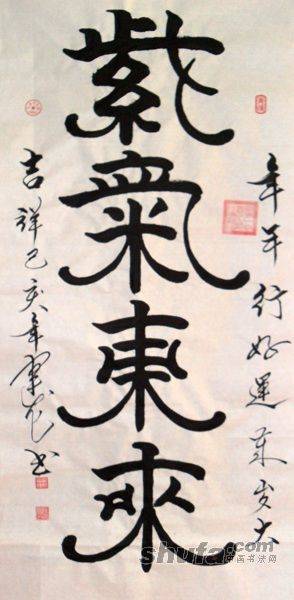 年年行好運歲岁大
紫氣東來
吉祥己亥年书
shufa.com
书法网